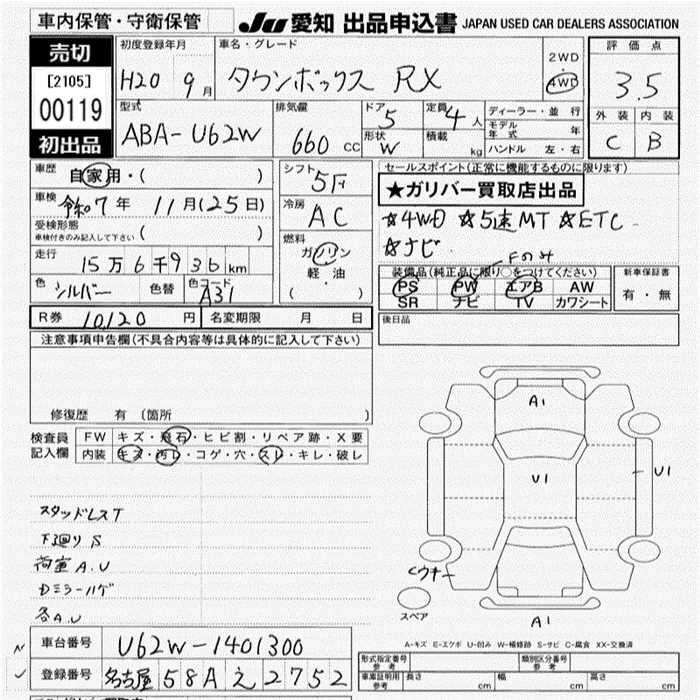 車内保管・守衛保管
Ju 愛知 出品申込書 JAPAN USED CAR DEALERS ASSOCIATION
売切
[2105]
00119
初出品
初度登録年月
H20 9月
車名・グレード
タウンボックス RX
2WD
・
4WD
評価点
3.5
外装 内装
C B
型式
ABA-U62W
排気量
660 cc
ドア 5
形状 W
定員 4人
積載 kg
ディーラー・並行
モデル年式 年
ハンドル 左・右
車歴
自家用・( )
車検
令和7年 11月(25日)
受検形態
車検付きのみ記入して下さい ( )
走行
15万6千936km
色 シルバー 色替 色コード A31
シフト 5F
冷房 AC
燃料
ガソリン
軽油
( )
セールスポイント(正常に機能するものに限ります)
★ガリバー買取店出品
☆4WD ☆5速MT ☆ETC
☆ナビ
Fのみ
装備品(純正品に限り○をつけてください)
PS PW エアB AW
SR ナビ TV カワシート
新車保証書
有・無
R券 10120円 名変期限 月 日
後日品
注意事項申告欄(不具合内容等は具体的に記入して下さい)
修復歴 有 (箇所 )
検査員記入欄
FW キズ・飛石・ヒビ割・リペア跡・X要
内装 キズ・汚レ・コゲ・穴・スレ・キレ・破レ
スタッドレスT
下廻りS
荷室A.U
Dミラーハゲ
各A.U
A1
U1
U1
Cクォー
スペア
A1
A-キズ E-エクボ U-凹み W-補修跡 S-サビ C-腐食 XX-交換済
車台番号 U62W-1401300
登録番号 名古屋 58A え 2752
形式指定番号 参考 類別区分番号 参考
車庫証明用 参考 長さ cm 幅 cm 高さ cm